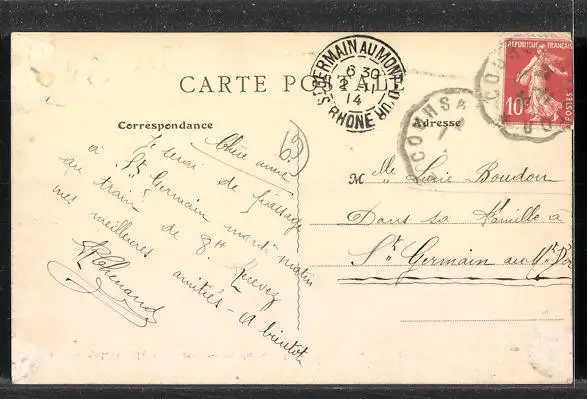 CARTE POSTALE
St GERMAIN AU MONT D'OR
6 30
2 - 1
14
RHONE
RÉPUBLIQUE FRANÇAISE
10
Correspondance
Adresse
Chère amie
Je serai de passage
à St Germain mardi matin
au train de 8H Recevez
mes meilleures amitiés - A bientôt
Mlle Boudon
Dans sa famille à
St Germain au Mt d'or